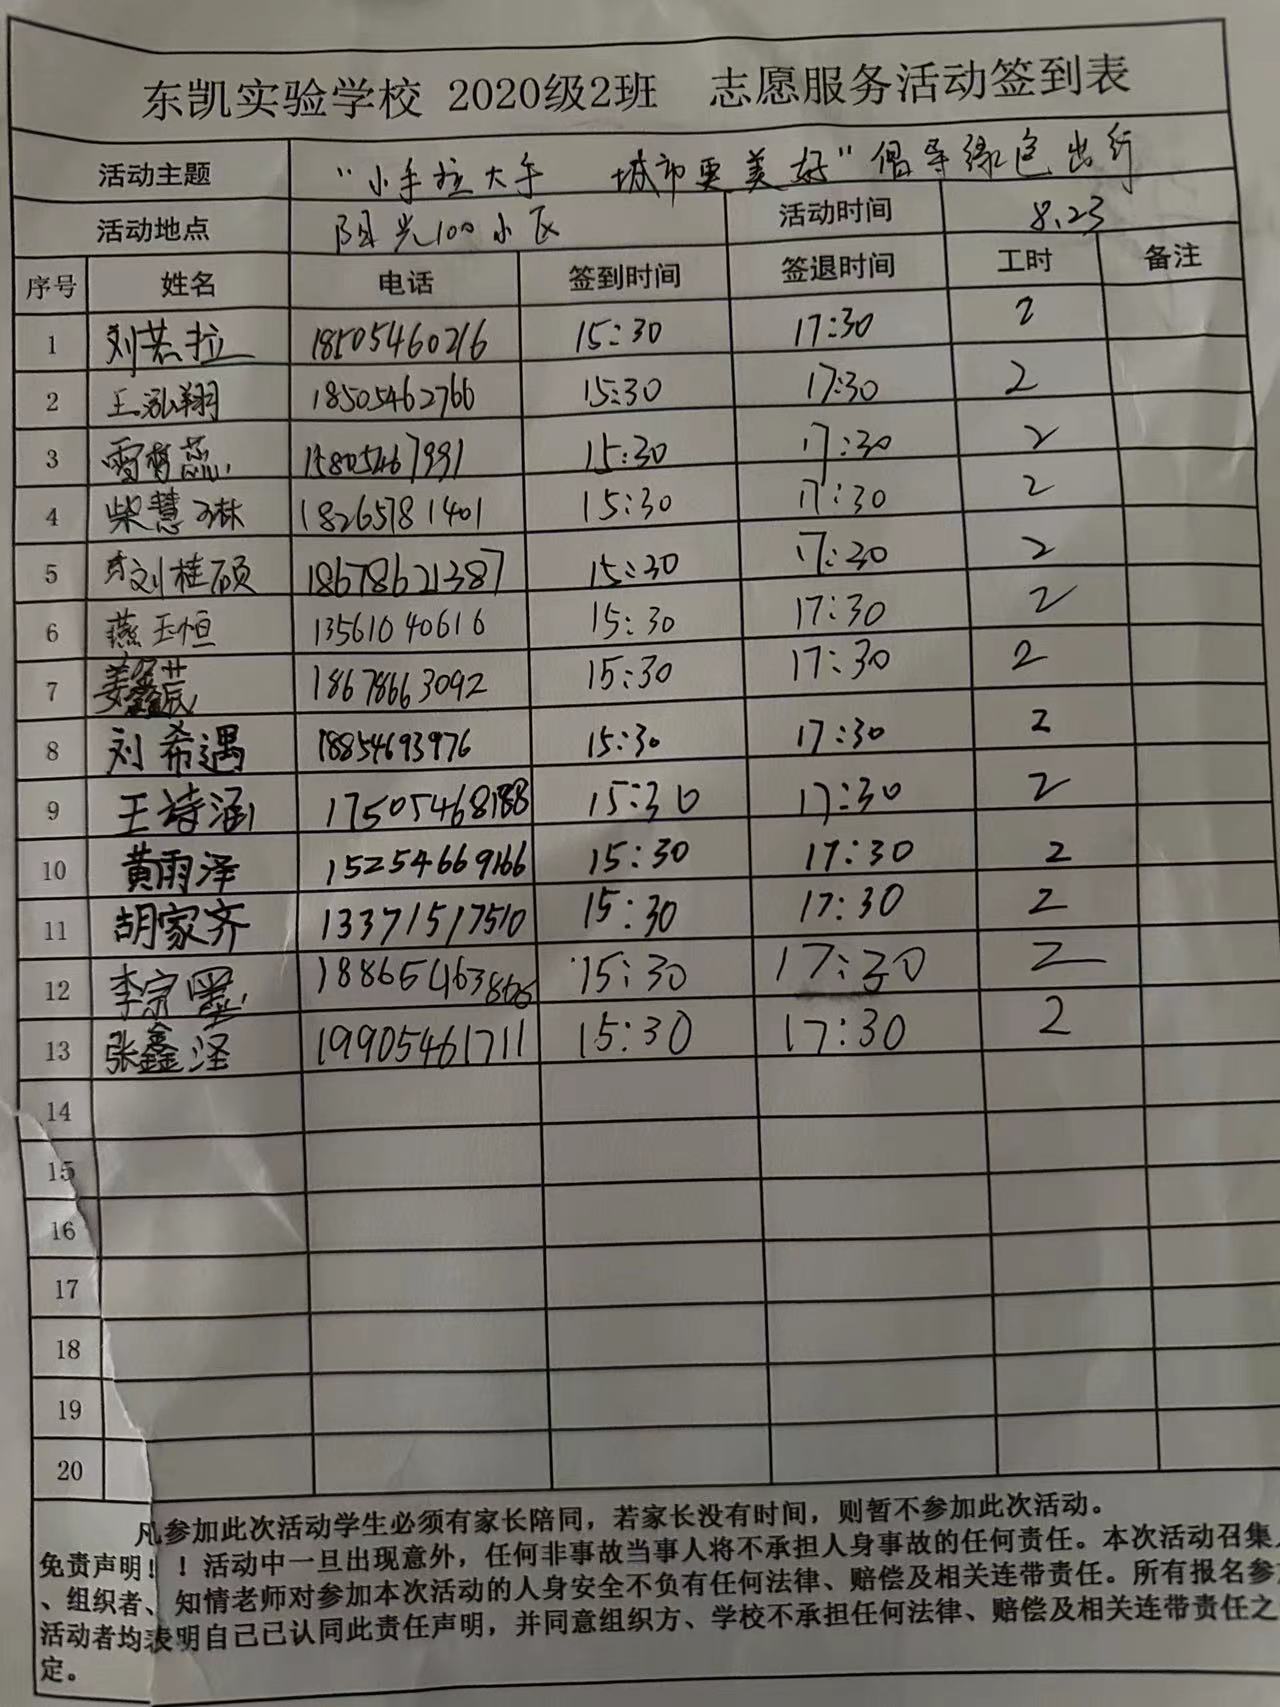 东凯实验学校 2020级2班 志愿服务活动签到表
活动主题 “小手拉大手 城市更美好”倡导绿色出行
活动地点 阳光100小区 活动时间 8.23
序号 姓名 电话 签到时间 签退时间 工时 备注
1 刘若拉 18505460216 15:30 17:30 2
2 王泓翔 18505462766 15:30 17:30 2
3 15805467991 15:30 17:30 2
4 柴慧琳 18265781401 15:30 17:30 2
5 刘桂硕 18678621387 15:30 17:30 2
6 燕玉恒 13561040616 15:30 17:30 2
7 姜 18678663092 15:30 17:30 2
8 刘希遇 18854693976 15:30 17:30 2
9 王诗涵 17505468188 15:30 17:30 2
10 黄雨泽 15254669166 15:30 17:30 2
11 胡家齐 13371517510 15:30 17:30 2
12 李宗墨 15:30 17:30 2
13 张鑫泽 19905461711 15:30 17:30 2
14
15
16
17
18
19
20
凡参加此次活动学生必须有家长陪同，若家长没有时间，则暂不参加此次活动。
免责声明！！活动中一旦出现意外，任何非事故当事人将不承担人身事故的任何责任。本次活动召集
、组织者、知情老师对参加本次活动的人身安全不负有任何法律、赔偿及相关连带责任。所有报名参
活动者均表明自己已认同此责任声明，并同意组织方、学校不承担任何法律、赔偿及相关连带责任之
定。